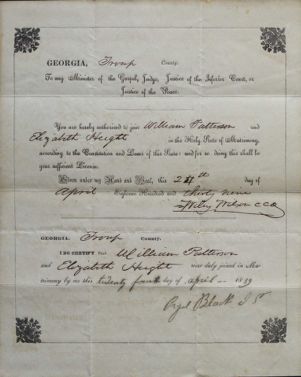 GEORGIA, Troup County.
To any Minister of the Gospel, Judge, Justice of the Inferior Court, or
Justice of the Peace.
You are hereby authorized to join William Patterson and
Elizabeth Height in the Holy State of Matrimony,
according to the Constitution and Laws of this State: and for so doing this shall be
your sufficient License.
Given under my Hand and Seal, this 24th day of
April Eighteen Hundred and thirty nine
Wiley Wilson C C O
GEORGIA. Troup County.
I DO CERTIFY that William Patterson
and Elizabeth Height were duly joined in Ma-
trimony by me this twenty fourth day of April 1839
Black J. P.